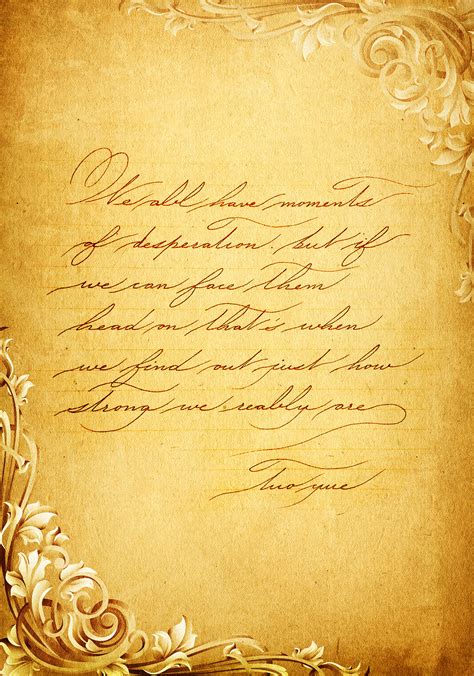 We all have moments
of desperation. but if
we can face them
head on that's when
we find out just how
strong we really are